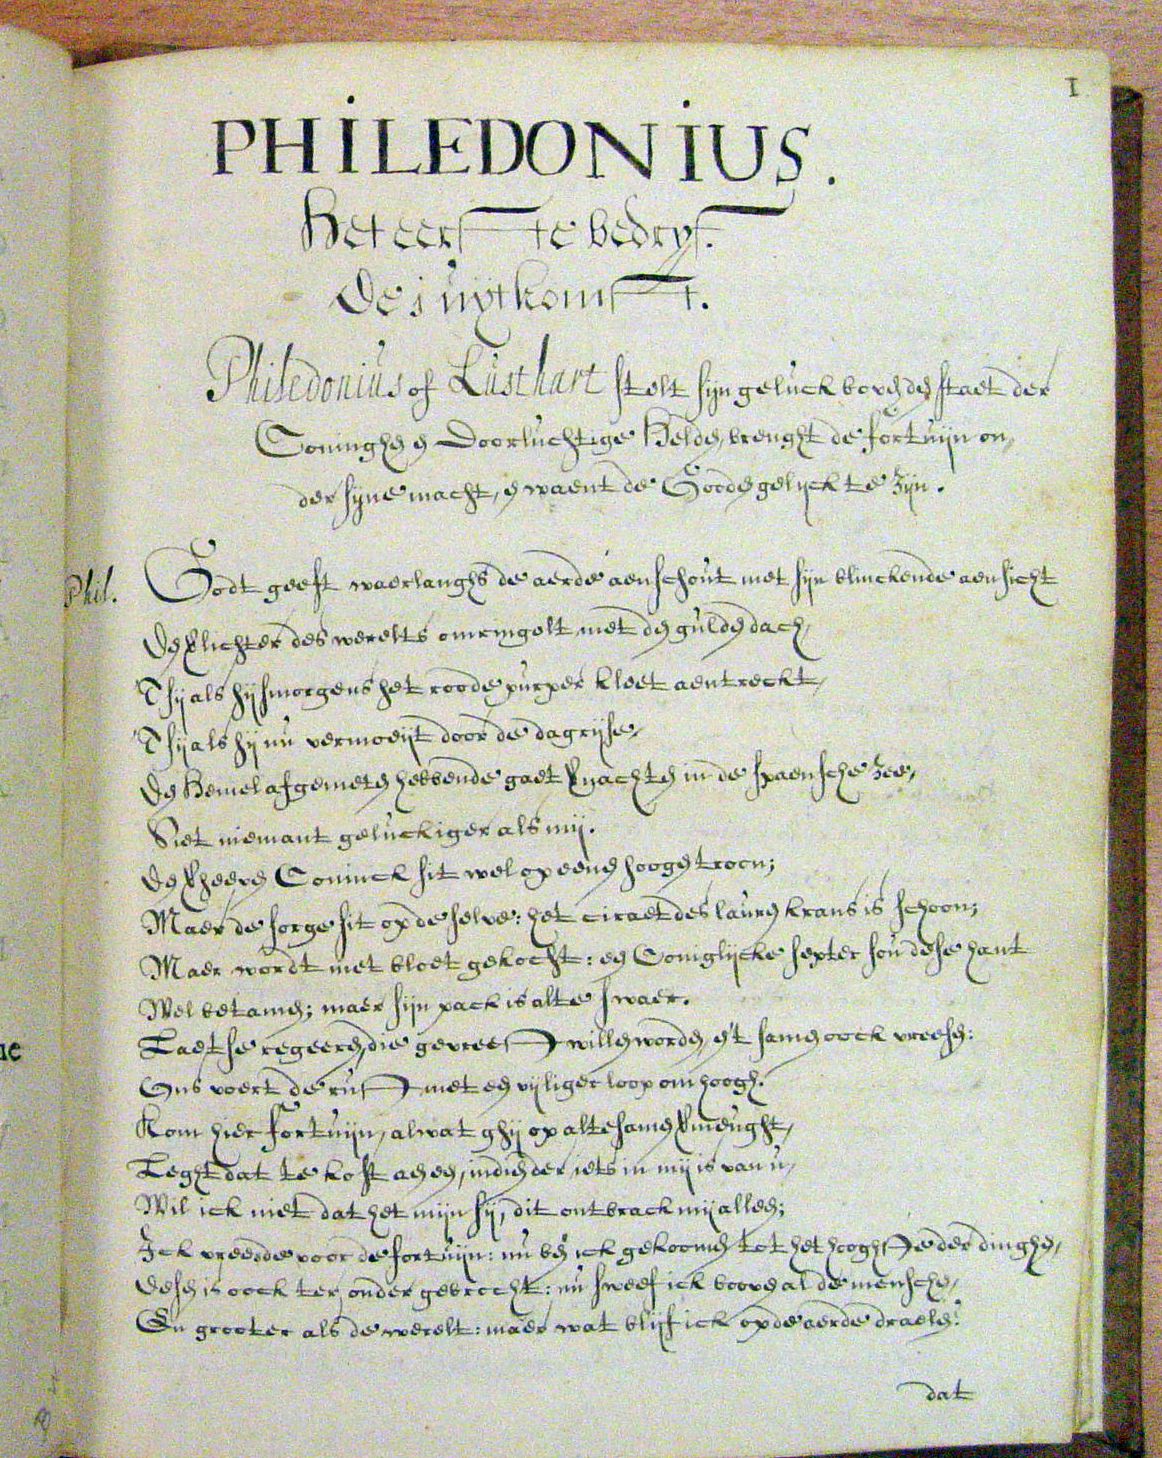 1
PHILEDONIUS.
Het eerste bedryf.
De j uytkomst.
Philedonius of Lusthart stelt sijn geluck boven den staet der
Coninghen en Doorluchtige Helden, brenght de fortuijn on,
der sijne macht, en waent de Gooden gelijck te zijn.
Phil. Godt geeft waerlanghs de aerde aenschout met sijn blinckende aensicht
Den verlichter des werelts omringelt met den gulden dach,
'Tsij als hij smorgens het roode purper kleet aentreckt,
'Tsij als hij nu vermoeijt door de dagrijse,
Den Hemel afgemeten hebbende gaet vernachten in de spaensche Zee,
Siet niemant geluckiger als mij.
Den verheven Coninck sit wel op eenen hoogen troon;
Maer de sorge sit op de selve: het ciraet des lauren krans is schoon;
Maer wordt met bloet gekocht: een Coniglijcke septer sou dese hant
Wel betamen; maer sijn pack is alte swaer.
Laet se regeeren, die gevreest willen worden, en 't samen oock vreesen:
Ons voert de rust met een vijliger loop om hoogh.
Kom hier fortuijn, alwat ghij op altesamen vermeught,
Leght dat te kost aen een, indien der iets in mij is van u,
Wil ick niet dat het mijn sij, dit ontbrack mij alleen;
Ick vreesde voor de fortuijn: nu ben ick gekoomen tot het hooghste der dinghen,
desen is oock ter onder gebrocht: nu sweef ick boven al de menschen,
En grooter als de werelt: maer wat blijf ick op de aerde draelen?
dat